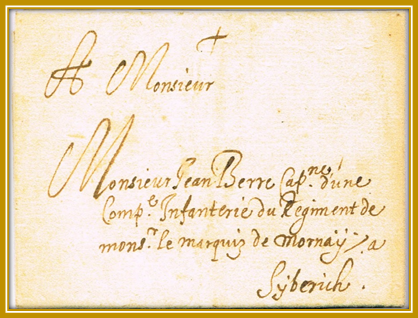 A Monsieur
Monsieur Jean Berre Cap.ne d'une
Comp.e Infanterie du Regiment de
mons.r le marquiz de Mornaÿ. a
Syberich.